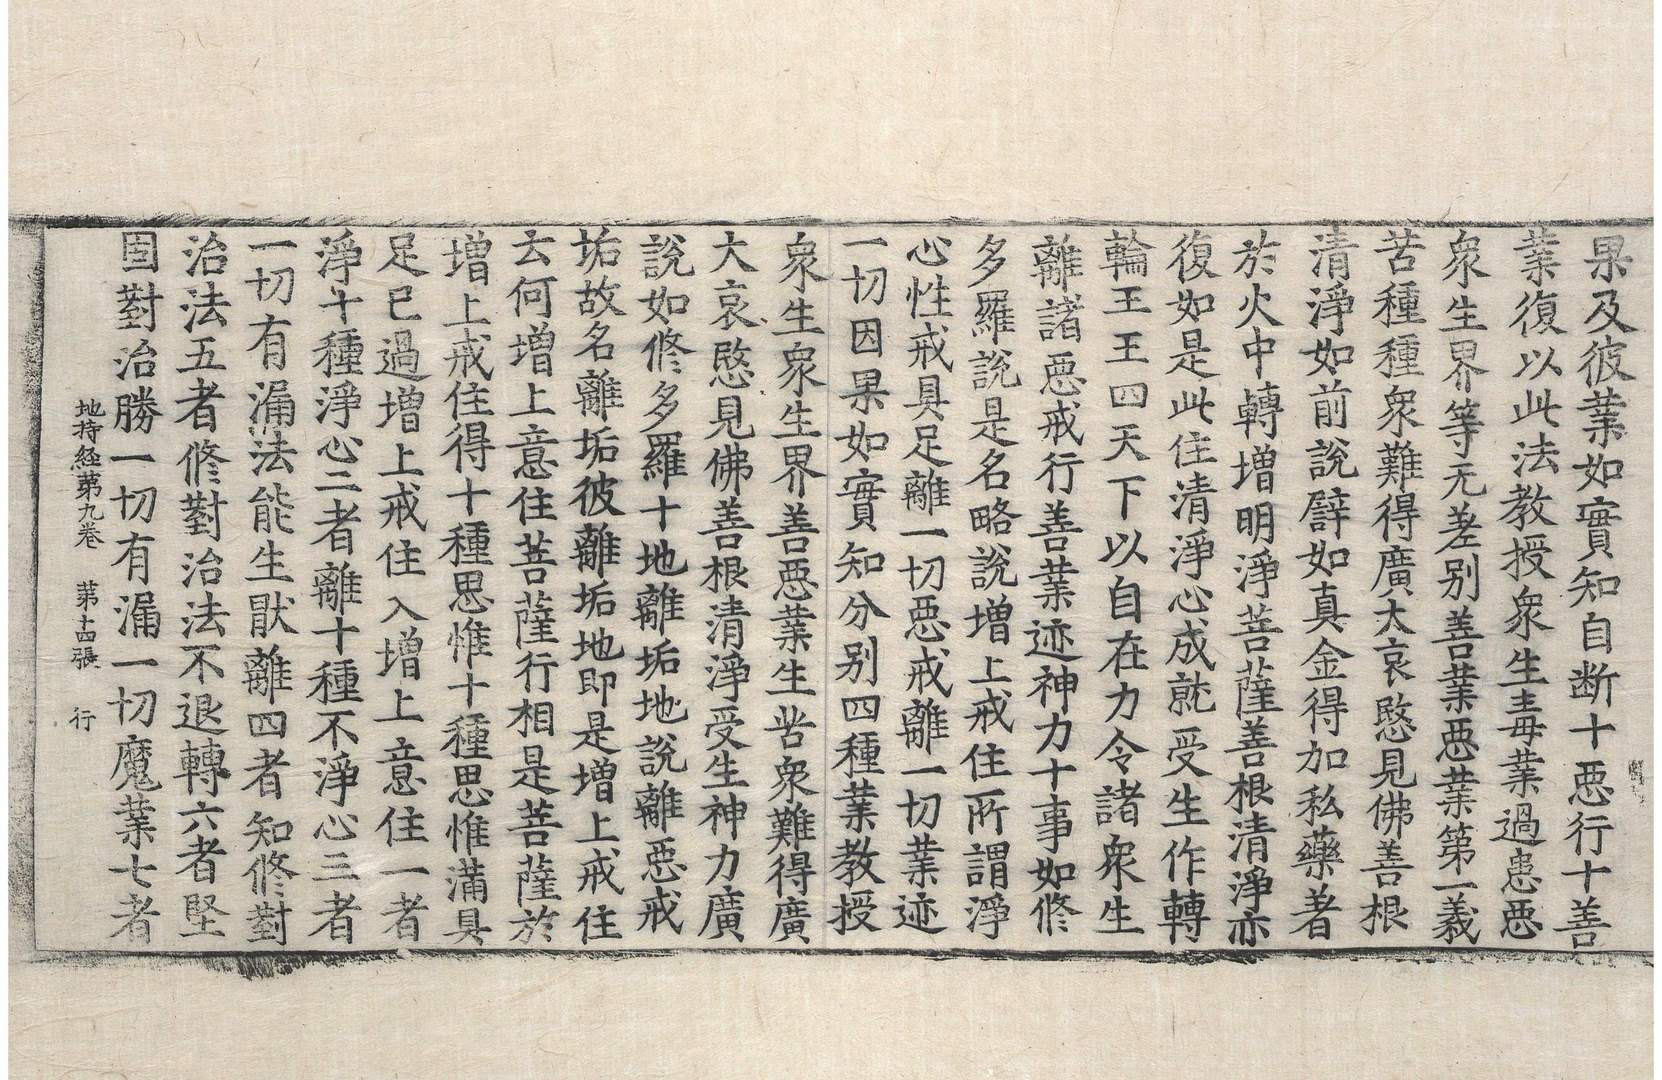 果及彼業如實知自断十惡行十善
業復以此法教授衆生毒業過患惡
衆生界等无差别善業惡業第一義
苦種種衆難得廣大哀愍見佛善根
清淨如前說譬如真金得加私藥著
於火中轉增明淨菩薩善根清淨亦
復如是此住清淨心成就受生作轉
輪王王四天下以自在力令諸衆生
離諸惡戒行善業迹神力十事如修
多羅說是名略說增上戒住所謂淨
心性戒具足離一切惡戒離一切業迹
一切因果如實知分别四種業教授
衆生衆生界善惡業生苦衆難得廣
大哀愍見佛善根清淨受生神力廣
說如修多羅十地離垢地說離惡戒
垢故名離垢彼離垢地即是增上戒住
云何增上意住菩薩行相是菩薩於
增上戒住得十種思惟十種思惟滿具
足已過增上戒住入增上意住一者
淨十種淨心二者離十種不淨心三者
一切有漏法能生猒離四者知修對
治法五者修對治法不退轉六者堅
固對治勝一切有漏一切魔業七者
地持経苐九卷 苐十四張 行